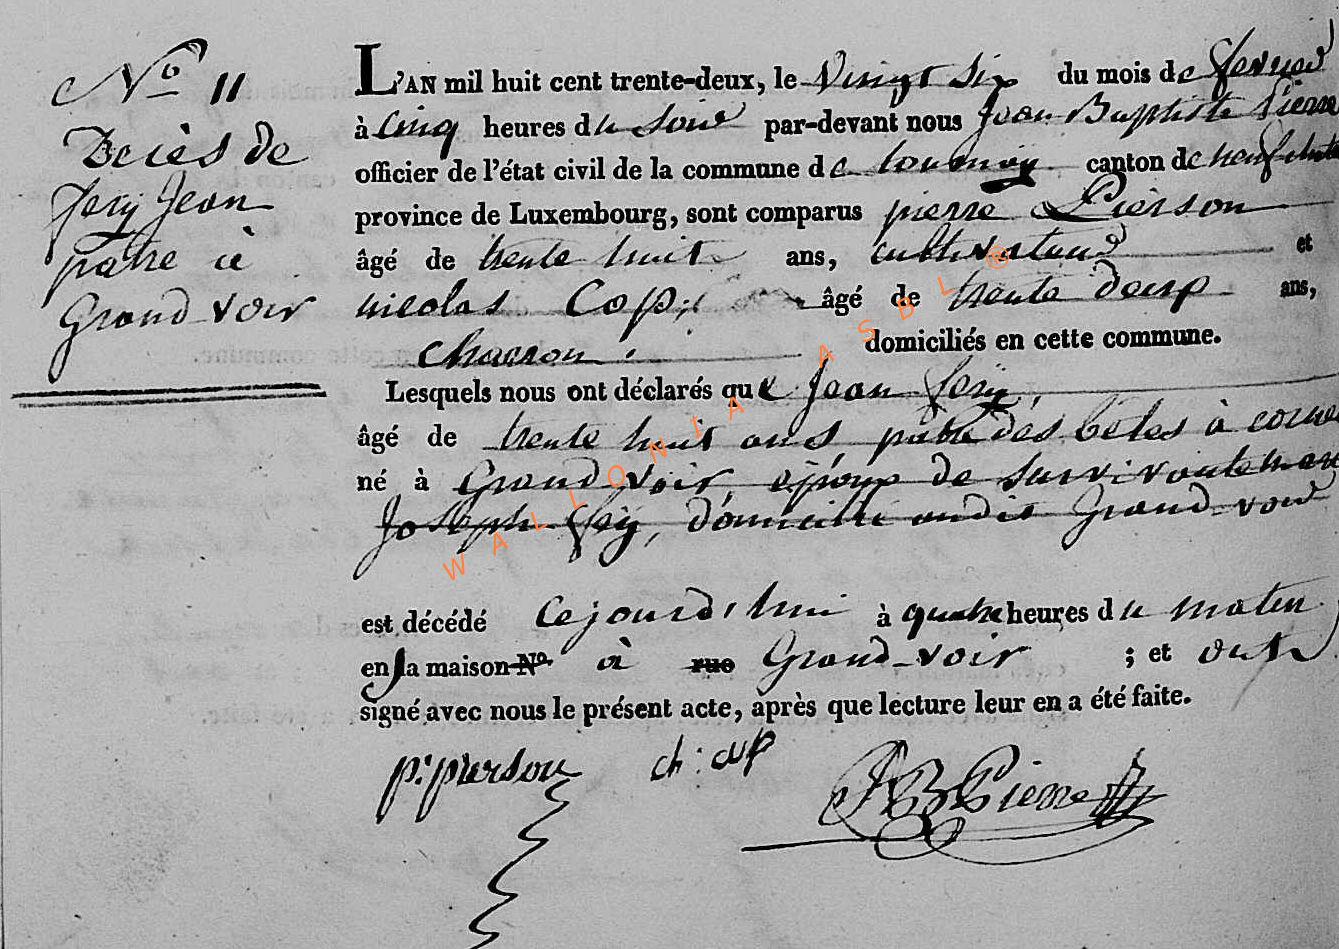 No 11
Décès de
Jean
pâtre à
Grand voir
L'AN mil huit cent trente-deux, le Vingt Six du mois de fevrier
à Cinq heures du Soir par-devant nous Jean Baptiste Pierre
officier de l'état civil de la commune de tournay canton de neufchateau
province de Luxembourg, sont comparus pierre Pierson
âgé de trente huit ans, cultivateur et
nicolas âgé de trente deux ans,
charron . domiciliés en cette commune.
Lesquels nous ont déclarés que Jean
âgé de trente huit ans pâtre des bêtes à corne
né à Grand voir, époux de survivante marie
Joseph domicilié audit Grand-voir
est décédé Cejourd'hui à quatre heures du matin
en sa maison No. à rue Grand-voir ; et ont
signé avec nous le présent acte, après que lecture leur en a été faite.
p: pierson
JB Pierre
WALLONIA ASBL ®